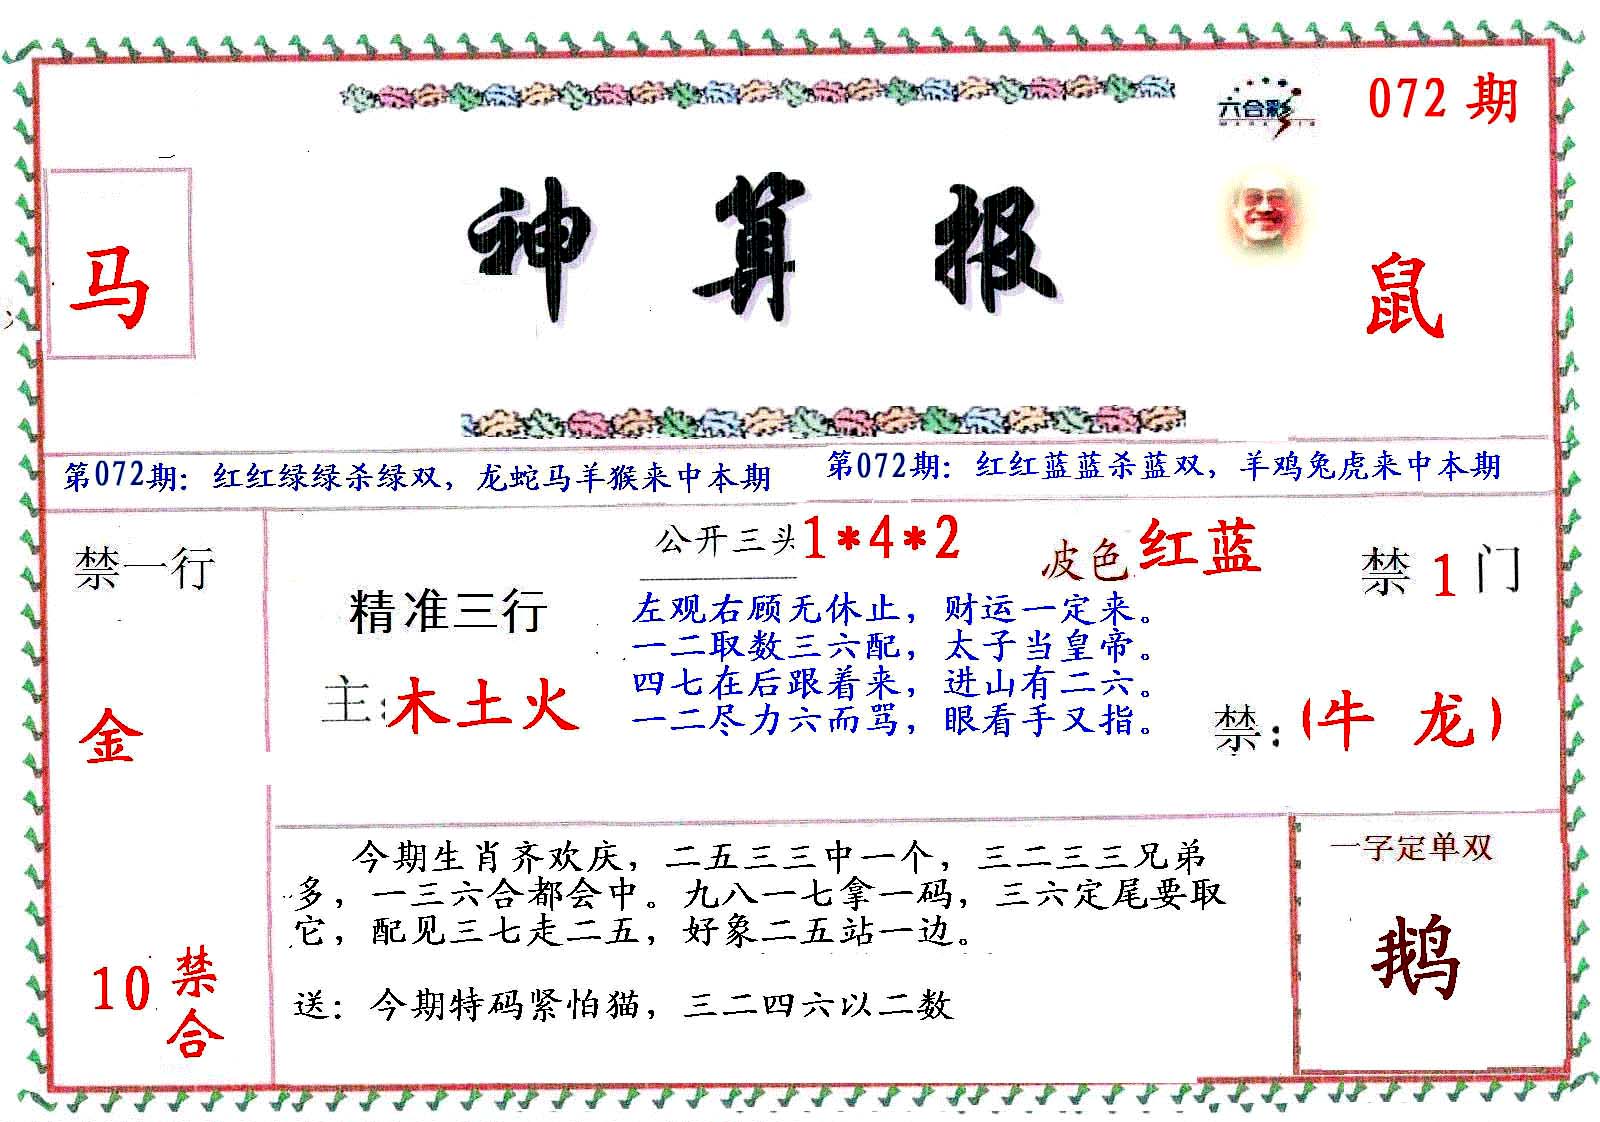 072 期
六合彩
马
神算报
鼠
第072期：红红绿绿杀绿双，龙蛇马羊猴来中本期
第072期：红红蓝蓝杀蓝双，羊鸡兔虎来中本期
禁一行
金
10 禁合
精准三行
主:木土火
公开三头1*4*2
波色 红蓝
左观右顾无休止，财运一定来。
一二取数三六配，太子当皇帝。
四七在后跟着来，进山有二六。
一二尽力六而骂，眼看手又指。
禁 1 门
禁:(牛 龙)
今期生肖齐欢庆，二五三三中一个，三二三三兄弟
多，一三六合都会中。九八一七拿一码，三六定尾要取
它，配见三七走二五，好象二五站一边。
送：今期特码紧怕猫，三二四六以二数
一字定单双
鹅